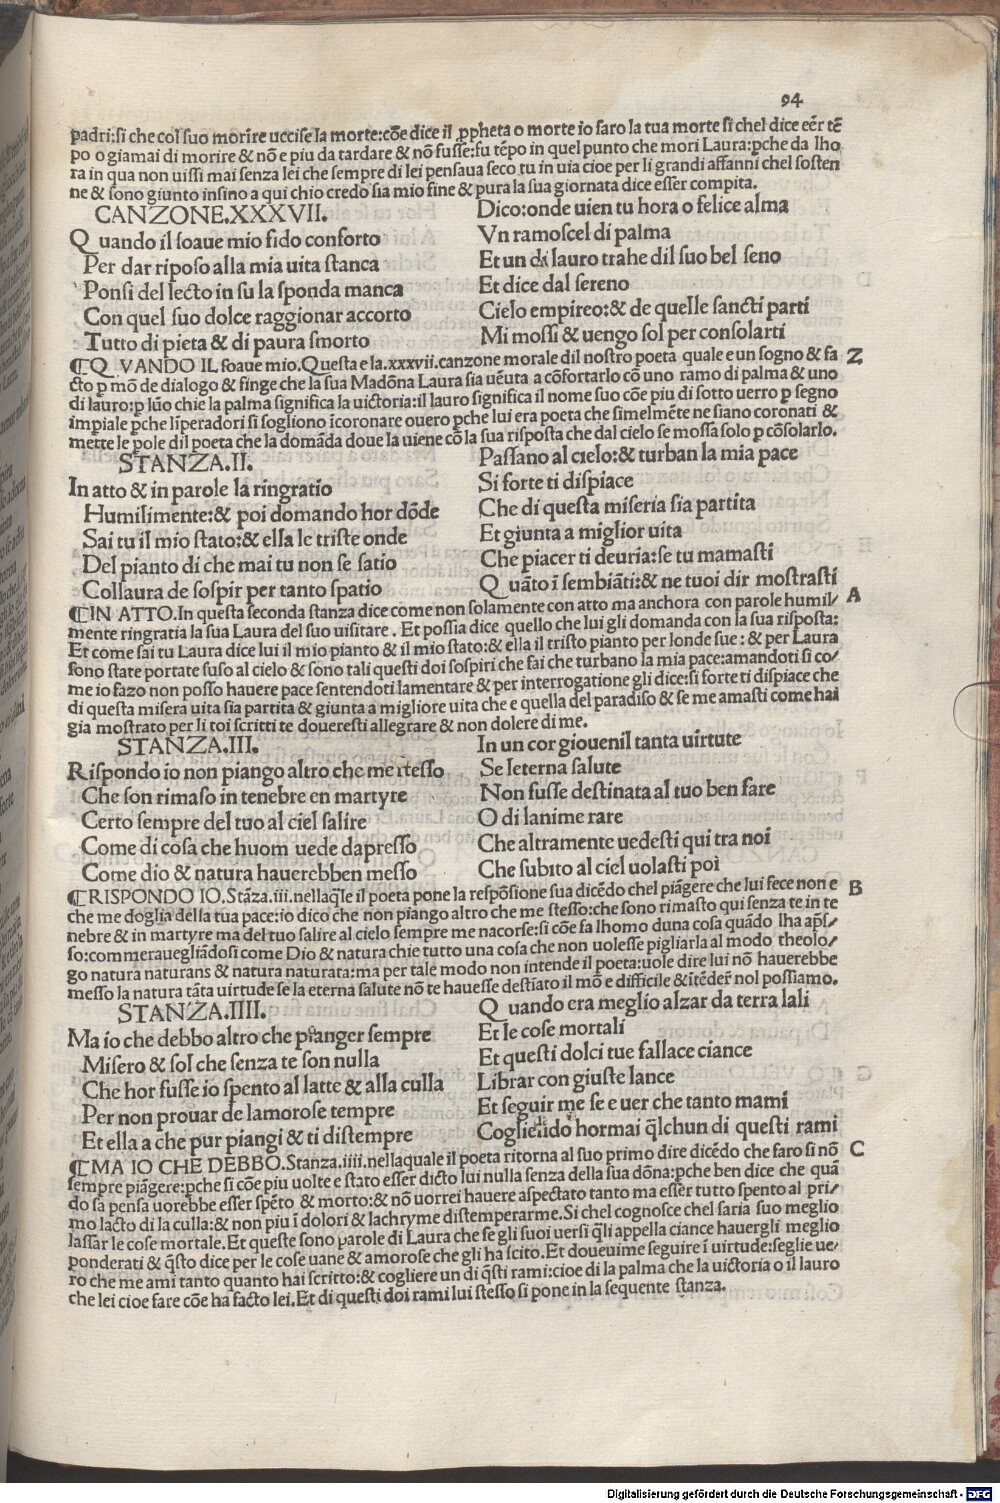 94
padri:si che col suo morire uccise la morte:cõe dice il ꝓpheta o morte io saro la tua morte si chel dice eẽr tẽ
po o giamai di morire & nõ e piu da tardare & nõ fusse:fu tẽpo in quel punto che mori Laura:pche da lho
ra in qua non uissi mai senza lei che sempre di lei pensaua seco tu in uia cioe per li grandi affanni chel sosten
ne & sono giunto insino a qui chio credo sia mio fine & pura la sua giornata dice esser compita.
CANZONE.XXXVII.
Q uando il soaue mio fido conforto
Per dar riposo alla mia uita stanca
Ponsi del lecto in su la sponda manca
Con quel suo dolce raggionar accorto
Tutto di pieta & di paura smorto
Dico:onde uien tu hora o felice alma
Vn ramoscel di palma
Et un di lauro trahe dil suo bel seno
Et dice dal sereno
Cielo empireo:& de quelle sancti parti
Mi mossi & uengo sol per consolarti
¶Q VANDO IL soaue mio.Questa e la.xxxvii.canzone morale dil nostro poeta quale e un sogno & fa Z
cto p mõ de dialogo & finge che la sua Madõna Laura sia uẽuta a cõfortarlo cõ uno ramo di palma & uno
di lauro:p lũo chie la palma significa la uictoria:il lauro significa il nome suo cõe piu di sotto uerro p segno
impiale pche lĩperadori si sogliono ĩcoronare ouero pche lui era poeta che simelmẽte ne siano coronati &
mette le pole dil poeta che la domãda doue la uiene cõ la sua risposta che dal cielo se mossa solo p cõsolarlo.
STANZA.II.
In atto & in parole la ringratio
Humilimente:& poi domando hor dõde
Sai tu il mio stato:& essa le triste onde
Del pianto di che mai tu non se satio
Collaura de sospir per tanto spatio
Passano al cielo:& turban la mia pace
Si forte ti dispiace
Che di questa miseria sia partita
Et giunta a miglior uita
Che piacer ti deuria:se tu mamasti
Q uãto ĩ sembiãti:& ne tuoi dir mostrasti
¶IN ATTO.In questa seconda stanza dice come non solamente con atto ma anchora con parole humil/ A
mente ringratia la sua Laura del suo uisitare. Et possia dice quello che lui gli domanda con la sua risposta:
Et come sai tu Laura dice lui il mio pianto & il mio stato:& ella il tristo pianto per londe sue:& per Laura
sono state portate suso al cielo & sono tali questi doi sospiri che fai che turbano la mia pace:amandoti si co/
me io fazo non posso hauere pace sentendoti lamentare & per interrogatione gli dice:si forte ti dispiace che
di questa misera uita sia partita & giunta a migliore uita che e quella del paradiso & se me amasti come hai
gia mostrato per li toi scritti te doueresti allegrare & non dolere di me.
STANZA.III.
Rispondo io non piango altro che me stesso
Che son rimaso in tenebre en martyre
Certo sempre del tuo al ciel salire
Come di cosa che huom uede dapresso
Come dio & natura hauerebben messo
In un cor giouenil tanta uirtute
Se leterna salute
Non fusse destinata al tuo ben fare
O di lanime rare
Che altramente uedesti qui tra noi
Che subito al ciel uolasti poi
¶RISPONDO IO.Stãza.iii.nellaq̃le il poeta pone la respõsione sua dicẽdo chel piãgere che lui fece non e B
che me doglia della tua pace:io dico che non piango altro che me stesso:che sono rimasto qui senza te in te
nebre & in martyre ma del tuo salire al cielo sempre me nacorse:si cõe fa lhomo duna cosa quãdo lha aps̃/
so:commerauegliãdosi come Dio & natura chie tutto una cosa che non uolesse pigliarla al modo theolo/
go natura naturans & natura naturata:ma per tale modo non intende il poeta:uole dire lui nõ hauerebbe
messo la natura tãta uirtude se la eterna salute nõ te hauesse destiato il mõ e difficile & ĩtẽder̃ nol possiamo.
STANZA.IIII.
Ma io che debbo altro che pianger sempre
Misero & sol che senza te son nulla
Che hor fusse io spento al latte & alla culla
Per non prouar de lamorose tempre
Et ella a che pur piangi & ti distempre
Q uando era meglio alzar da terra lali
Et le cose mortali
Et questi dolci tue fallace ciance
Librar con giuste lance
Et seguir me se e uer che tanto mami
Cogliẽdo hormai q̃lchun di questi rami
¶MA IO CHE DEBBO.Stanza.iiii.nellaquale il poeta ritorna al suo primo dire dicẽdo che faro si nõ C
sempre piãgere:pche si cõe piu uolte e stato esser dicto lui nulla senza della sua dõna:pche ben dice che quã
do sa pensa uorebbe esser spẽto & morto:& nõ uorrei hauere aspectato tanto ma esser tutto spento al pri/
mo lacto di la culla:& non piu ĩ dolori & lachryme distemperarme.Si chel cognosce chel saria suo meglio
lassar le cose mortale.Et queste sono parole di Laura che se gli suoi uersi q̃li appella ciance hauergli meglio
ponderati & q̃sto dice per le cose uane & amorose che gli ha scito.Et doueuime seguire ĩ uirtude:seglie ue/
ro che me ami tanto quanto hai scritto:& cogliere un di q̃sti rami:cioe di la palma che la uictoria o il lauro
che lei cioe fare cõe ha facto lei.Et di questi doi rami lui stesso si pone in la sequente stanza.
Digitalisierung gefördert durch die Deutsche Forschungsgemeinschaft - DFG